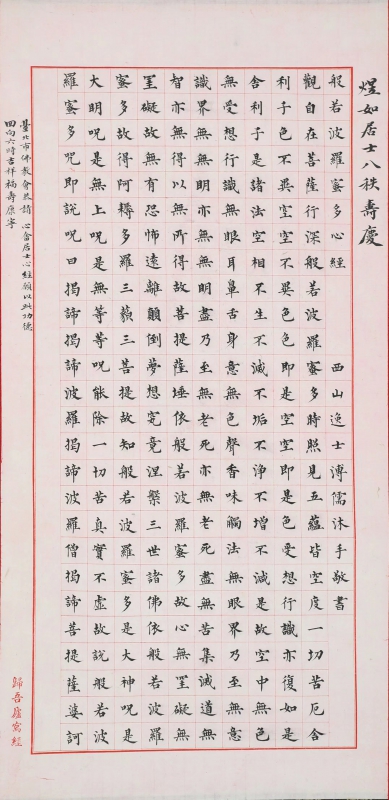 煜如居士八秩壽慶
般若波羅蜜多心經 西山逸士溥儒沐手敬書
觀自在菩薩行深般若波羅蜜多時照見五蘊皆空度一切苦厄舍
利子色不異空空不異色色即是空空即是色受想行識亦復如是
舍利子是諸法空相不生不滅不垢不淨不增不減是故空中無色
無受想行識無眼耳鼻舌身意無色聲香味觸法無眼界乃至無意
識界無無明亦無無明盡乃至無老死亦無老死盡無苦集滅道無
智亦無得以無所得故菩提薩埵依般若波羅蜜多故心無罣礙無
罣礙故無有恐怖遠離顛倒夢想究竟涅槃三世諸佛依般若波羅
蜜多故得阿耨多羅三藐三菩提故知般若波羅蜜多是大神咒是
大明咒是無上咒是無等等咒能除一切苦真實不虛故說般若波
羅蜜多咒即說咒曰揭諦揭諦波羅揭諦波羅僧揭諦菩提薩婆訶
臺北市佛教會恭請 心畬居士心經願以此功德
回向六時吉祥福壽康寧
歸吾廬寫經